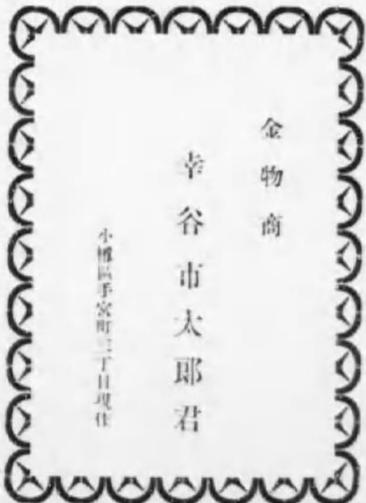 金物商
幸谷市太郎君
小樽區手宮町三丁目現住